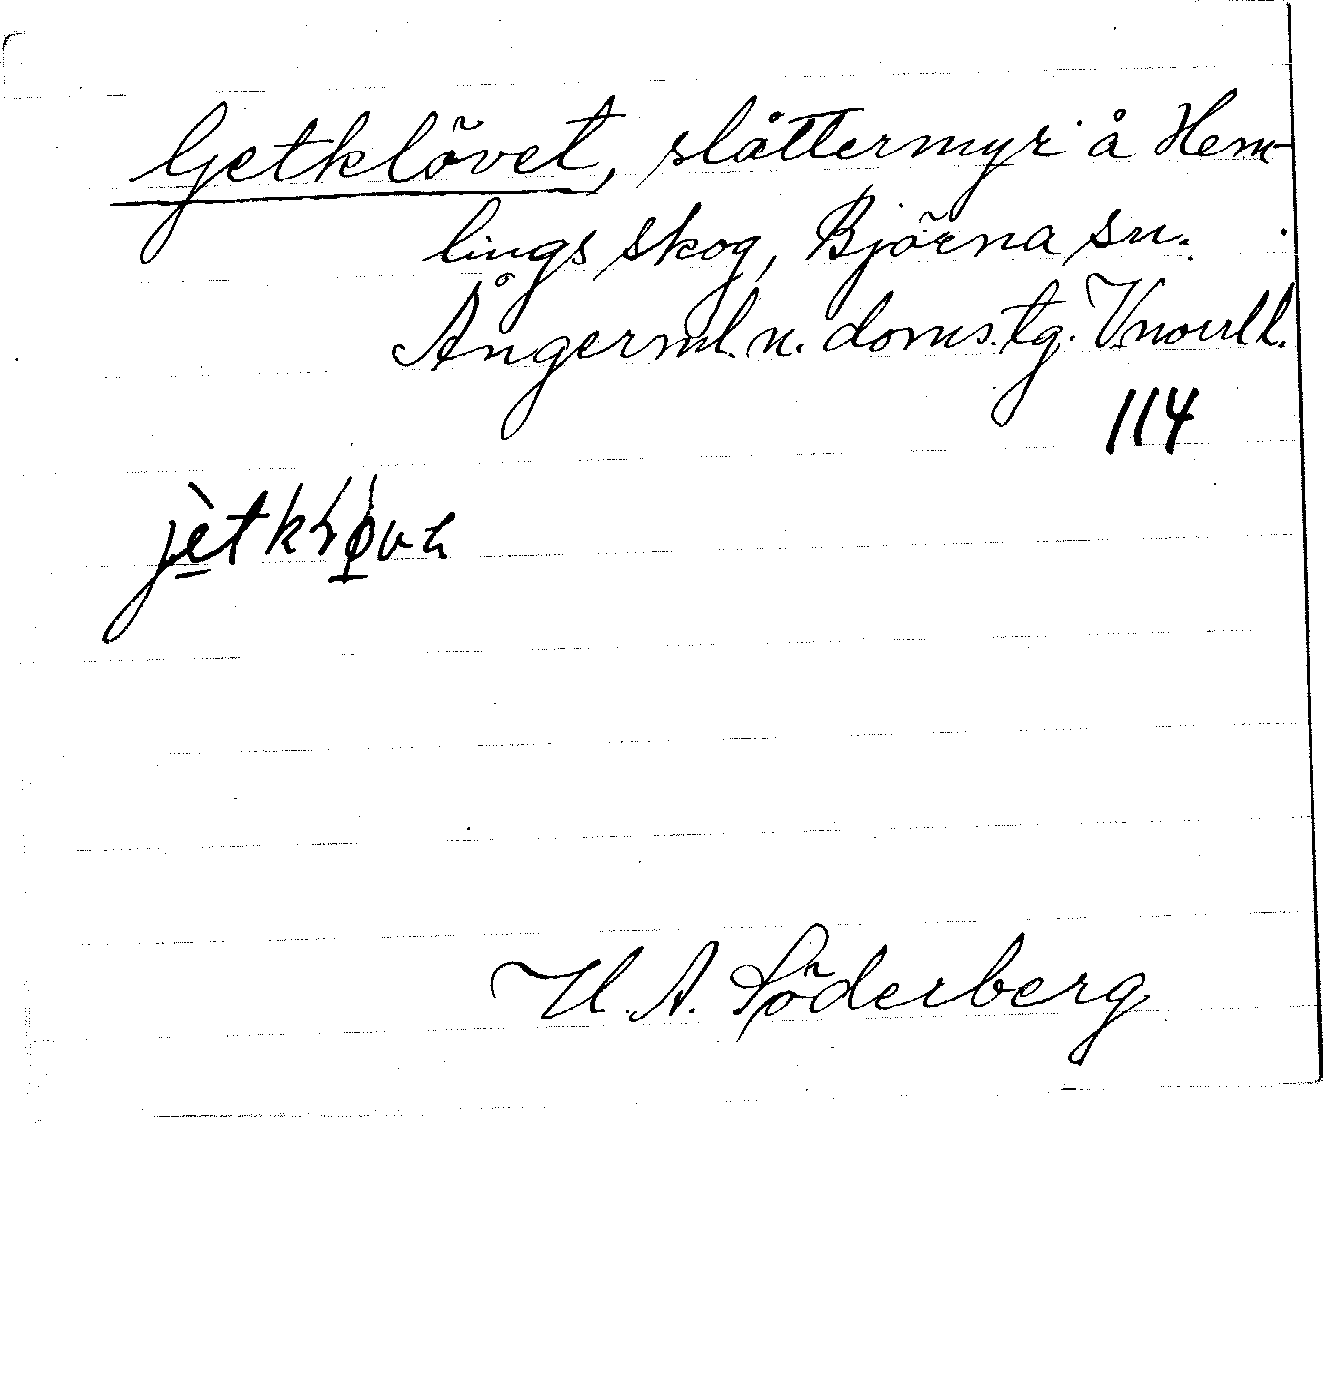 Getklövet, slåttermyr å Hem-
lings skog, Björna sn.
Ångerml. n. doms. tg. Vnorrl.
114
H. A. Söderberg